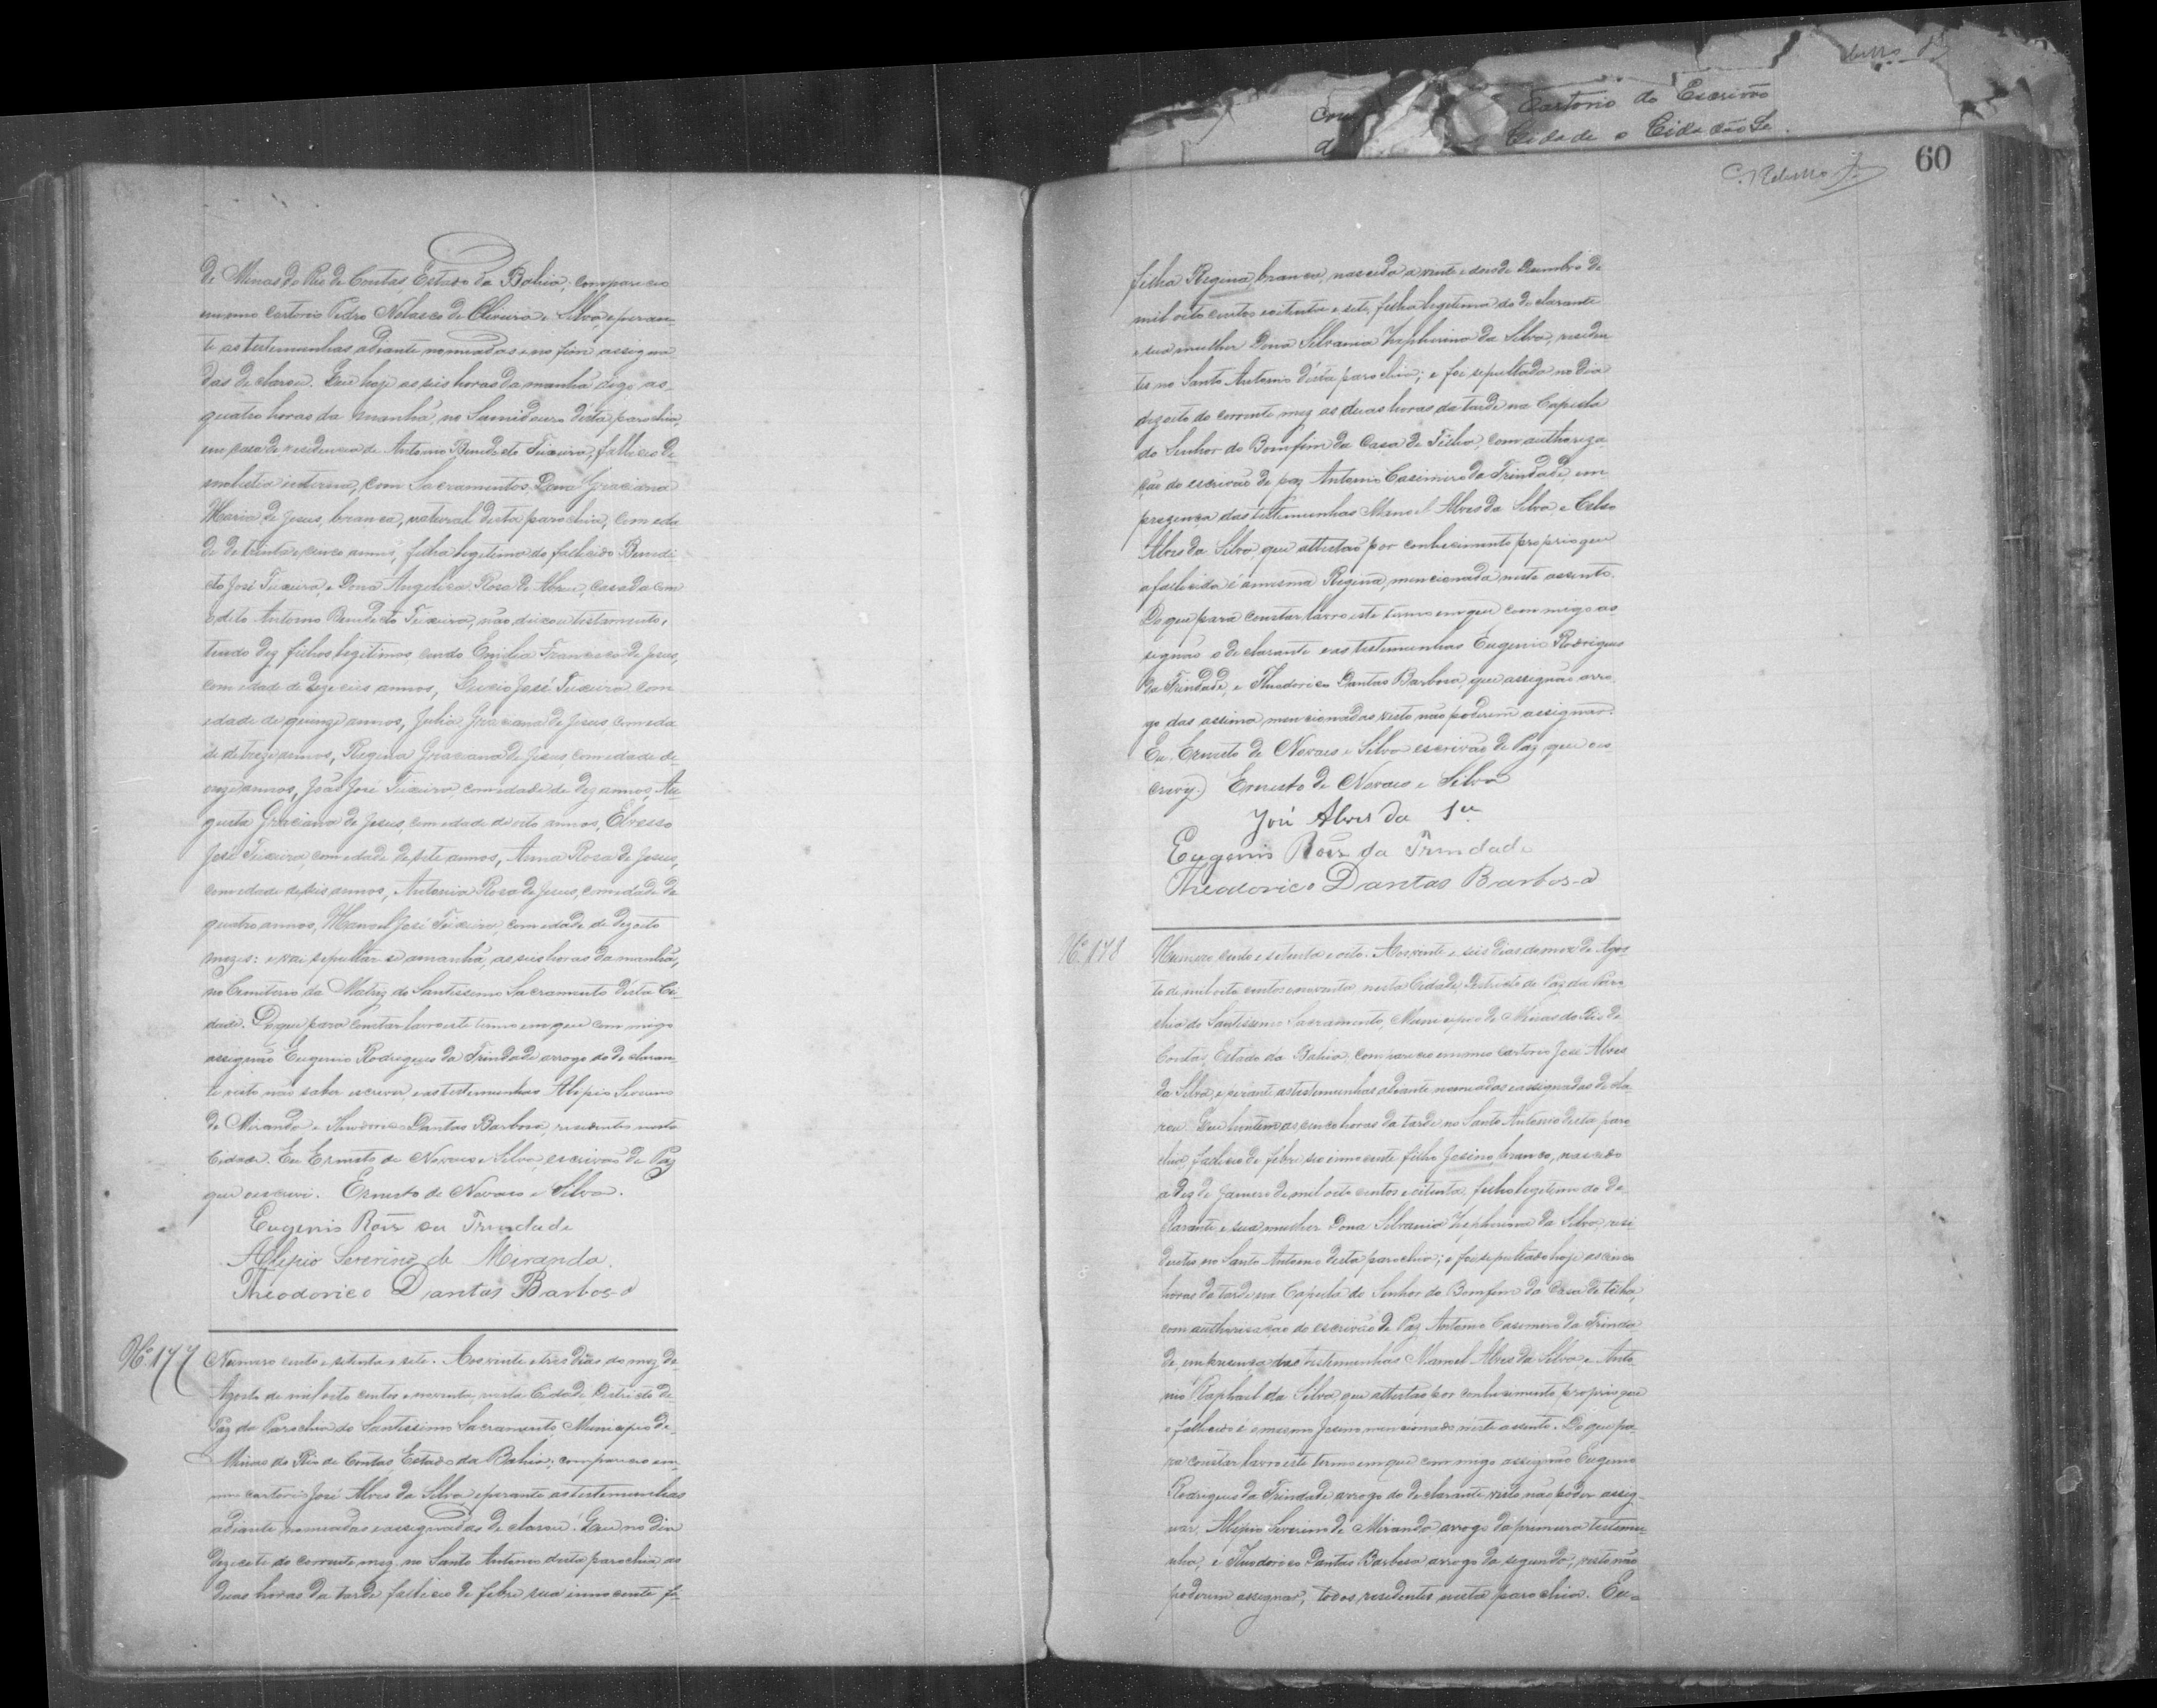 de Minas do Rio de Contas Estado da Bahia, compareceo
em meo cartorio Pedro Nolasco de Oliveira e Silva, e peran-
te as testemunhas adiante nomeadas e no fim assigna
das declarou. Que hoje as seis horas da manhã digo as
quatro horas da manhã, no Sumidouro d'esta parochia,
em casa de residencia de Antonio Benedicto Teixeira, falleceo de
molestia interna, com Sacramentos Dona Graciana
Maria de Jesus, branca, natural desta parochia, com eda
de de trinta e cinco annos, filha legitima do fallecido Benedi
cto José Teixeira, e Dona Angelica Rosa de Abreu, casada com
o dito Antonio Benedicto Teixeira, não deixou testamento,
tendo dez filhos legitimos, sendo Emilia Francisca de Jesus,
com edade de dezeseis annos, Lucio José Teixeira com
edade de quinze annos, Julia Graciana de Jesus com eda
de de treze annos, Regina Graciana de Jesus, com edade de
onze annos, João José Teixeira, com edade de dez annos, Au
gusta Graciana de Jesus, com edade de oito annos,
José Teixeira, com edade de sete annos, Anna Rosa de Jesus,
com edade de seis annos, Antonia Rosa de Jesus, com edade de
quatro annos, Manoel José Teixeira, com edade de dezoito
mezes: e vai sepultar-se amanhã, as seis horas da manhã,
no Cemiterio da Matriz do Santissimo Sacramento d'esta Ci-
dade. Do que para constar lavro este termo em que com migo
assignão Eugenio Rodrigues da Trindade arrogo do declaran-
te visto não saber escrever, e as testemunhas Alipio Severino
de Miranda e Theodorico Dantas Barbosa, residentes nesta
Cidade. Eu Ernesto de Novaes e Silva, escrivão de Paz
que escrevi. Ernesto de Novaes e Silva.
Eugenio Roiz da Trindade
Alipio Severino de Miranda.
Theodorico Dantas Barbosa
Nº 177
Numero cento e setenta e sete. Aos vinte e tres dias do mez de
Agosto de mil oito centos e noventa, nesta Cidade, Districto de
Paz da Parochia do Santissimo Sacramento, Municipio de
Minas do Rio de Contas, Estado da Bahia, compareceo em
meo cartorio José Alves da Silva, e perante as testemunhas
adiante nomeadas e assignadas declarou: Que no dia
dezesete do corrente mez no Santo Antonio desta parochia as
duas horas da tarde falleceo de febre sua innocente fi-
Cartorio do Escrivão
Cidade o Cidadão
C. Rebello
60
filha Regina, branca, nascida a vinte e dois de Dezembro de
mil oito centos e oitenta e sete, filha legitima do declarante
e sua mulher Dona Silvania Zepherina da Silva, residen
tes no Santo Antonio d'esta parochia; e foi sepultada no dia
dezoito do corrente mez as duas horas da tarde na Capella
do Senhor do Bomfim da Casa de Telha, com authoriza
ção do escrivão de paz Antonio Casimiro da Trindade, em
prezença das testemunhas Manoel Alves da Silva e Celso
Alves da Silva, que attestão por conhecimento proprio que
a fallecida é a mesma Regina, mencionada neste assento.
Do que para constar lavro este termo em que com migo as
segnão o declarante e as testemunhas Eugenio Rodrigues
da Trindade, e Theodorico Dantas Barbosa, que assignão arro
go das assima mencionadas visto não poderem assignar.
Eu, Ernesto de Novaes e Silva escrivão de Paz que o es
crevy. Ernesto de Novaes e Silva
José Alves da Sª
Eugenio Roiz da Trindade
Theodorico Dantas Barbosa
Nº 178
Numero cento e setenta e oito. Aos vinte e seis dias do mez de Agos
to de mil oito centos e noventa nesta Cidade, Districto de Paz da Paro
chia do Santissimo Sacramento, Municipio de Minas do Rio de
Contas, Estado da Bahia, compareceo em meo cartorio José Alves
da Silva, e perante as testemunhas adiante nomeadas e assignadas decla
rou. Que hontem as cinco horas da tarde no Santo Antonio desta paro
chia, falleceo de febre seo innocente filho Jesino, branco, nascido
a dez de Janeiro de mil oito centos e oitenta, filho legitimo do de
clarante e sua mulher Dona Silvania Zepherina da Silva, resi
dentes no Santo Antonio desta parochia; e foi sepultado hoje as cinco
horas da tarde na Capella do Senhor do Bomfim da Casa de telha,
com authorisação do escrivão de Paz Antonio Casemiro da Trinda
de, em presença das testemunhas Manoel Alves da Silva e Anto
nio Raphael da Silva, que attestão por conhecimento proprio que
o fallecido é o mesmo Jesino mencionado n'este assento. Do que pa-
ra constar lavro este termo em que com migo assignão Eugenio
Rodrigues da Trindade arrogo do declarante visto não poder assig-
nar, Alipio Severino de Miranda arrogo da primeira testemu
nha, e Theodorico Dantas Barbosa arrogo da segunda, visto não
poderem assignar, todos residentes nesta parochia. Eu